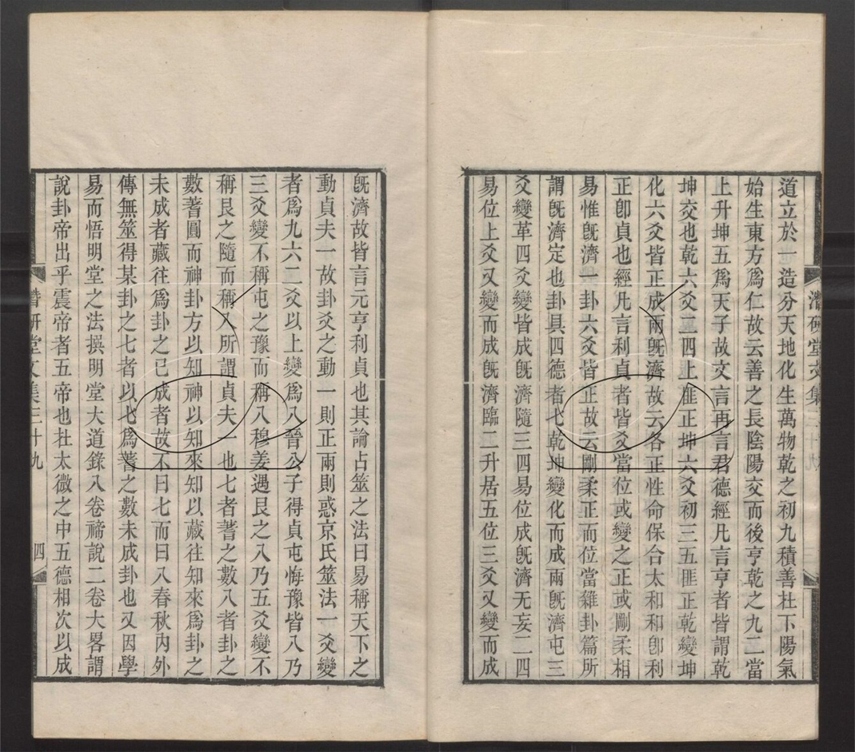 道立於一造分天地化生萬物乾之初九積善在下陽氣
始生東方爲仁故云善之長陰陽交而後亨乾之九二當
上升坤五爲天子故文言再言君德經凡言亨者皆謂乾
坤交也乾六爻二四上匪正坤六爻初三五匪正乾變坤
化六爻皆正成兩旣濟故云各正性命保合太和和卽利
正卽貞也經凡言利貞者皆爻當位或變之正或剛柔相
易惟旣濟一卦六爻皆正故云剛柔正而位當雜卦篇所
謂旣濟定也卦具四德者七乾坤變化而成兩旣濟屯三
爻變革四爻變皆成旣濟隨三四易位成旣濟无妄二四
易位上爻又變而成旣濟臨二升居五位三爻又變而成
旣濟故皆言元亨利貞也其論占筮之法曰易稱天下之
動貞夫一故卦爻之動一則正兩則惑京氏筮法一爻變
者爲九六二爻以上變爲八晉公子得貞屯悔豫皆八乃
三爻變不稱屯之豫而稱八穆姜遇艮之八乃五爻變不
稱艮之隨而稱八所謂貞夫一也七者蓍之數八者卦之
數蓍圓而神卦方以知神以知來知以藏往知來爲卦之
未成者藏往爲卦之已成者故不曰七而曰八春秋內外
傳無筮得某卦之七者以七爲蓍之數未成卦也又因學
易而悟明堂之法撰明堂大道錄八卷禘說二卷大畧謂
說卦帝出乎震帝者五帝也在太微之中五德相次以成
潛研堂文集三十九
四